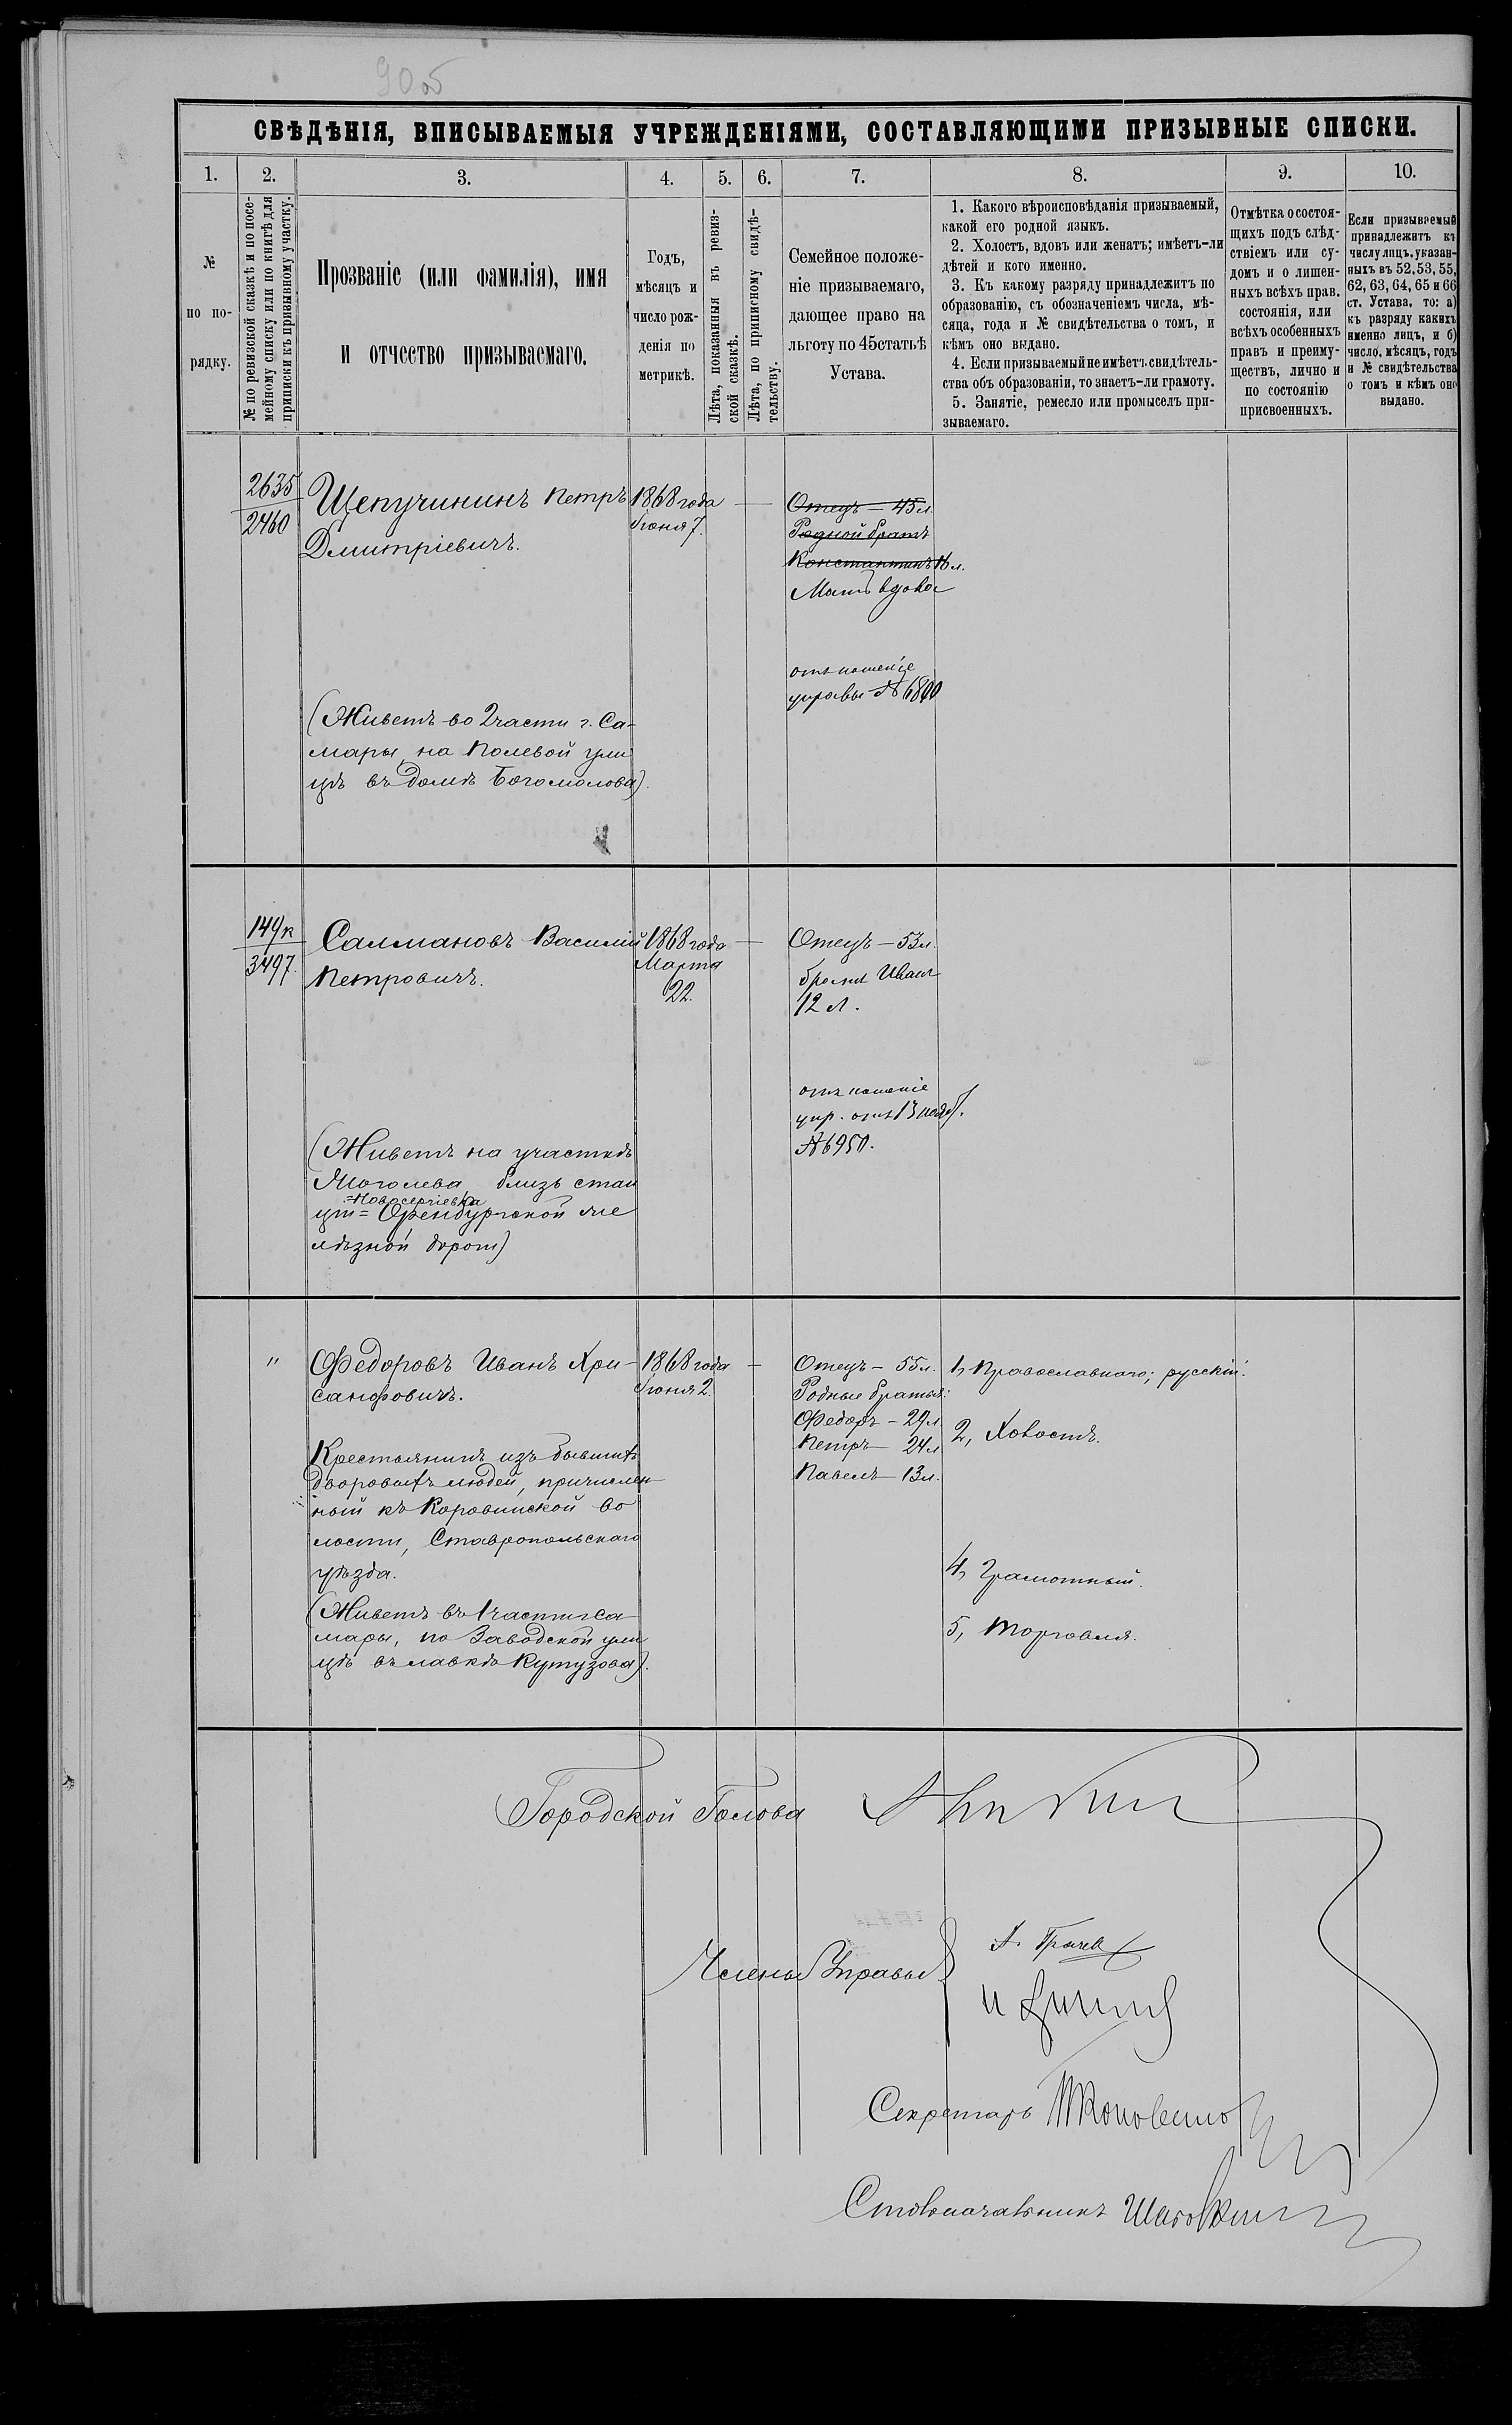 90об
СВѢДѢНІЯ, ВПИСЫВАЕМЫЯ УЧРЕЖДЕНІЯМИ, СОСТАВЛЯЮЩИМИ ПРИЗЫВНЫЕ СПИСКИ.
1.
№
по по-
рядку.
2.
№ по ревизской сказкѣ и по посе-
мейному списку или по книгѣ для
приписки къ призывному участку.
3.
Прозваніе (или фамилія), имя
и отчество призываемаго.
4.
Годъ,
мѣсяцъ и
число рож-
денія по
метрикѣ.
5.
Лѣта, показанныя въ ревиз-
ской сказкѣ.
6.
Лѣта, по приписному свидѣ-
тельству.
7.
Семейное положе-
ніе призываемаго,
дающее право на
льготу по 45 статьѣ
Устава.
8.
1. Какого вѣроисповѣданія призываемый,
какой его родной языкъ.
2. Холостъ, вдовъ или женатъ; имѣетъ-ли
дѣтей и кого именно.
3. Къ какому разряду принадлежитъ по
образованію, съ обозначеніемъ числа, мѣ-
сяца, года и № свидѣтельства о томъ, и
кѣмъ оно выдано.
4. Если призываемый не имѣетъ свидѣтель-
ства объ образованіи, то знаетъ-ли грамоту.
5. Занятіе, ремесло или промыселъ при-
зываемаго.
9.
Отмѣтка о состоя-
щихъ подъ слѣд-
ствіемъ или су-
домъ и о лишен-
ныхъ всѣхъ прав.
состоянія, или
всѣхъ особенныхъ
правъ и преиму-
ществъ, лично и
по состоянію
присвоенныхъ.
10.
Если призываемый
принадлежитъ къ
числу лицъ, указан-
ныхъ въ 52, 53, 55,
62, 63, 64, 65 и 66
ст. Устава, то: а)
къ разряду какихъ
именно лицъ, и б)
число, мѣсяцъ, годъ
и № свидѣтельства
о томъ и кѣмъ оно
выдано.
2635
2460
Щепучининъ Петръ
Дмитріевичъ.
(Живетъ во 2 части г. Са-
мары, на Полевой ули
цѣ въ домѣ Богомолова).
1868 года
Іюня 7.
—
Отецъ — 45 л.
Родной братъ
Константинъ 16 л.
Мать вдова
отношеніе
управы №
149к
3497.
Салмановъ Василій
Петровичъ.
(Живетъ на участкѣ
близъ стан
=Новосергіевка
ціи= Оренбургской же
лѣзной дороги)
1868 года
Марта
22.
—
Отецъ — 53 л.
братъ Иванъ
12 л.
отношеніе
упр. отъ 13 нояб.
№ 6950.
"
Федоровъ Иванъ Хри-
санфовичъ.
Крестьянинъ изъ бывшихъ
дворовыхъ людей, причислен
ный къ Коровинской во
лости, Ставропольскаго
уѣзда.
(Живетъ въ 1 части г. Са
мары, по Заводской ули
цѣ въ лавкѣ Кутузова).
1868 года
Іюня 2.
—
Отецъ — 55 л.
Родные братья:
Федоръ — 29 л.
Петръ — 24 л.
Павелъ — 13 л.
1, Православнаго; русскій.
2, Холостъ.
4, Грамотный.
5, Торговля.
Городской Голова
Члены Управы
Секретарь
Столоначальникъ